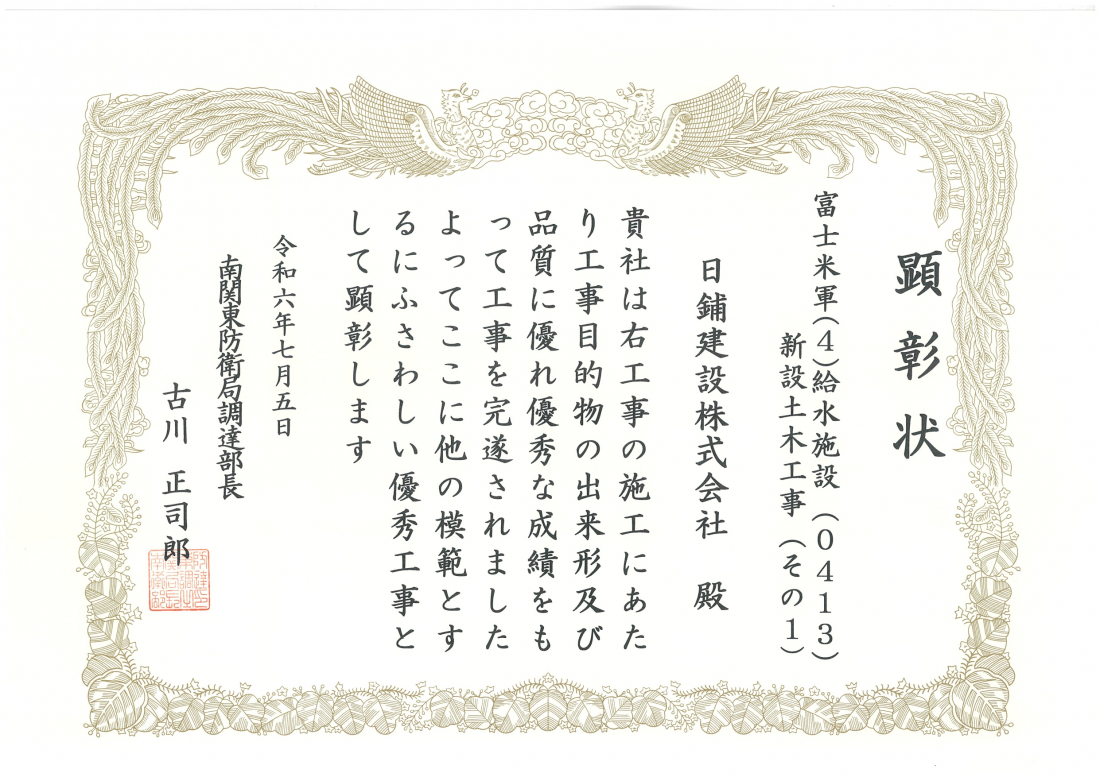 顕彰状
富士米軍(4)給水施設(0413)
新設土木工事(その1)
日鋪建設株式会社 殿
貴社は右工事の施工にあた
り工事目的物の出来形及び
品質に優れ優秀な成績をも
って工事を完遂されました
よってここに他の模範とす
るにふさわしい優秀工事と
して顕彰します
令和六年七月五日
南関東防衛局調達部長
古川 正司郎